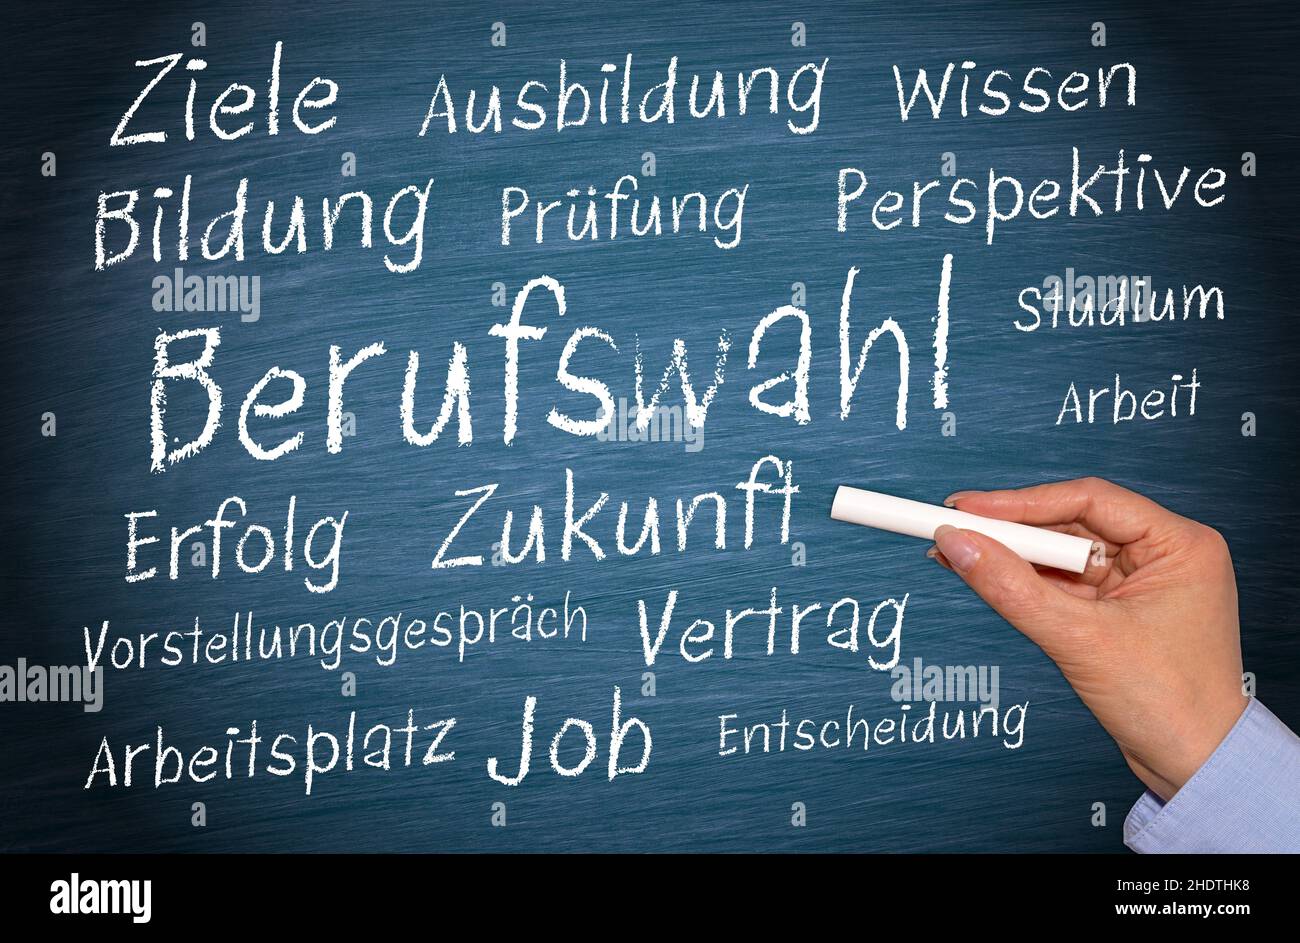 Ziele Ausbildung Wissen
Bildung Prüfung Perspektive
Berufswahl Studium
Arbeit
Erfolg Zukunft
Vorstellungsgespräch Vertrag
Arbeitsplatz Job Entscheidung
alamy
a
alamy
Image ID: 2HDTHK8
www.alamy.com